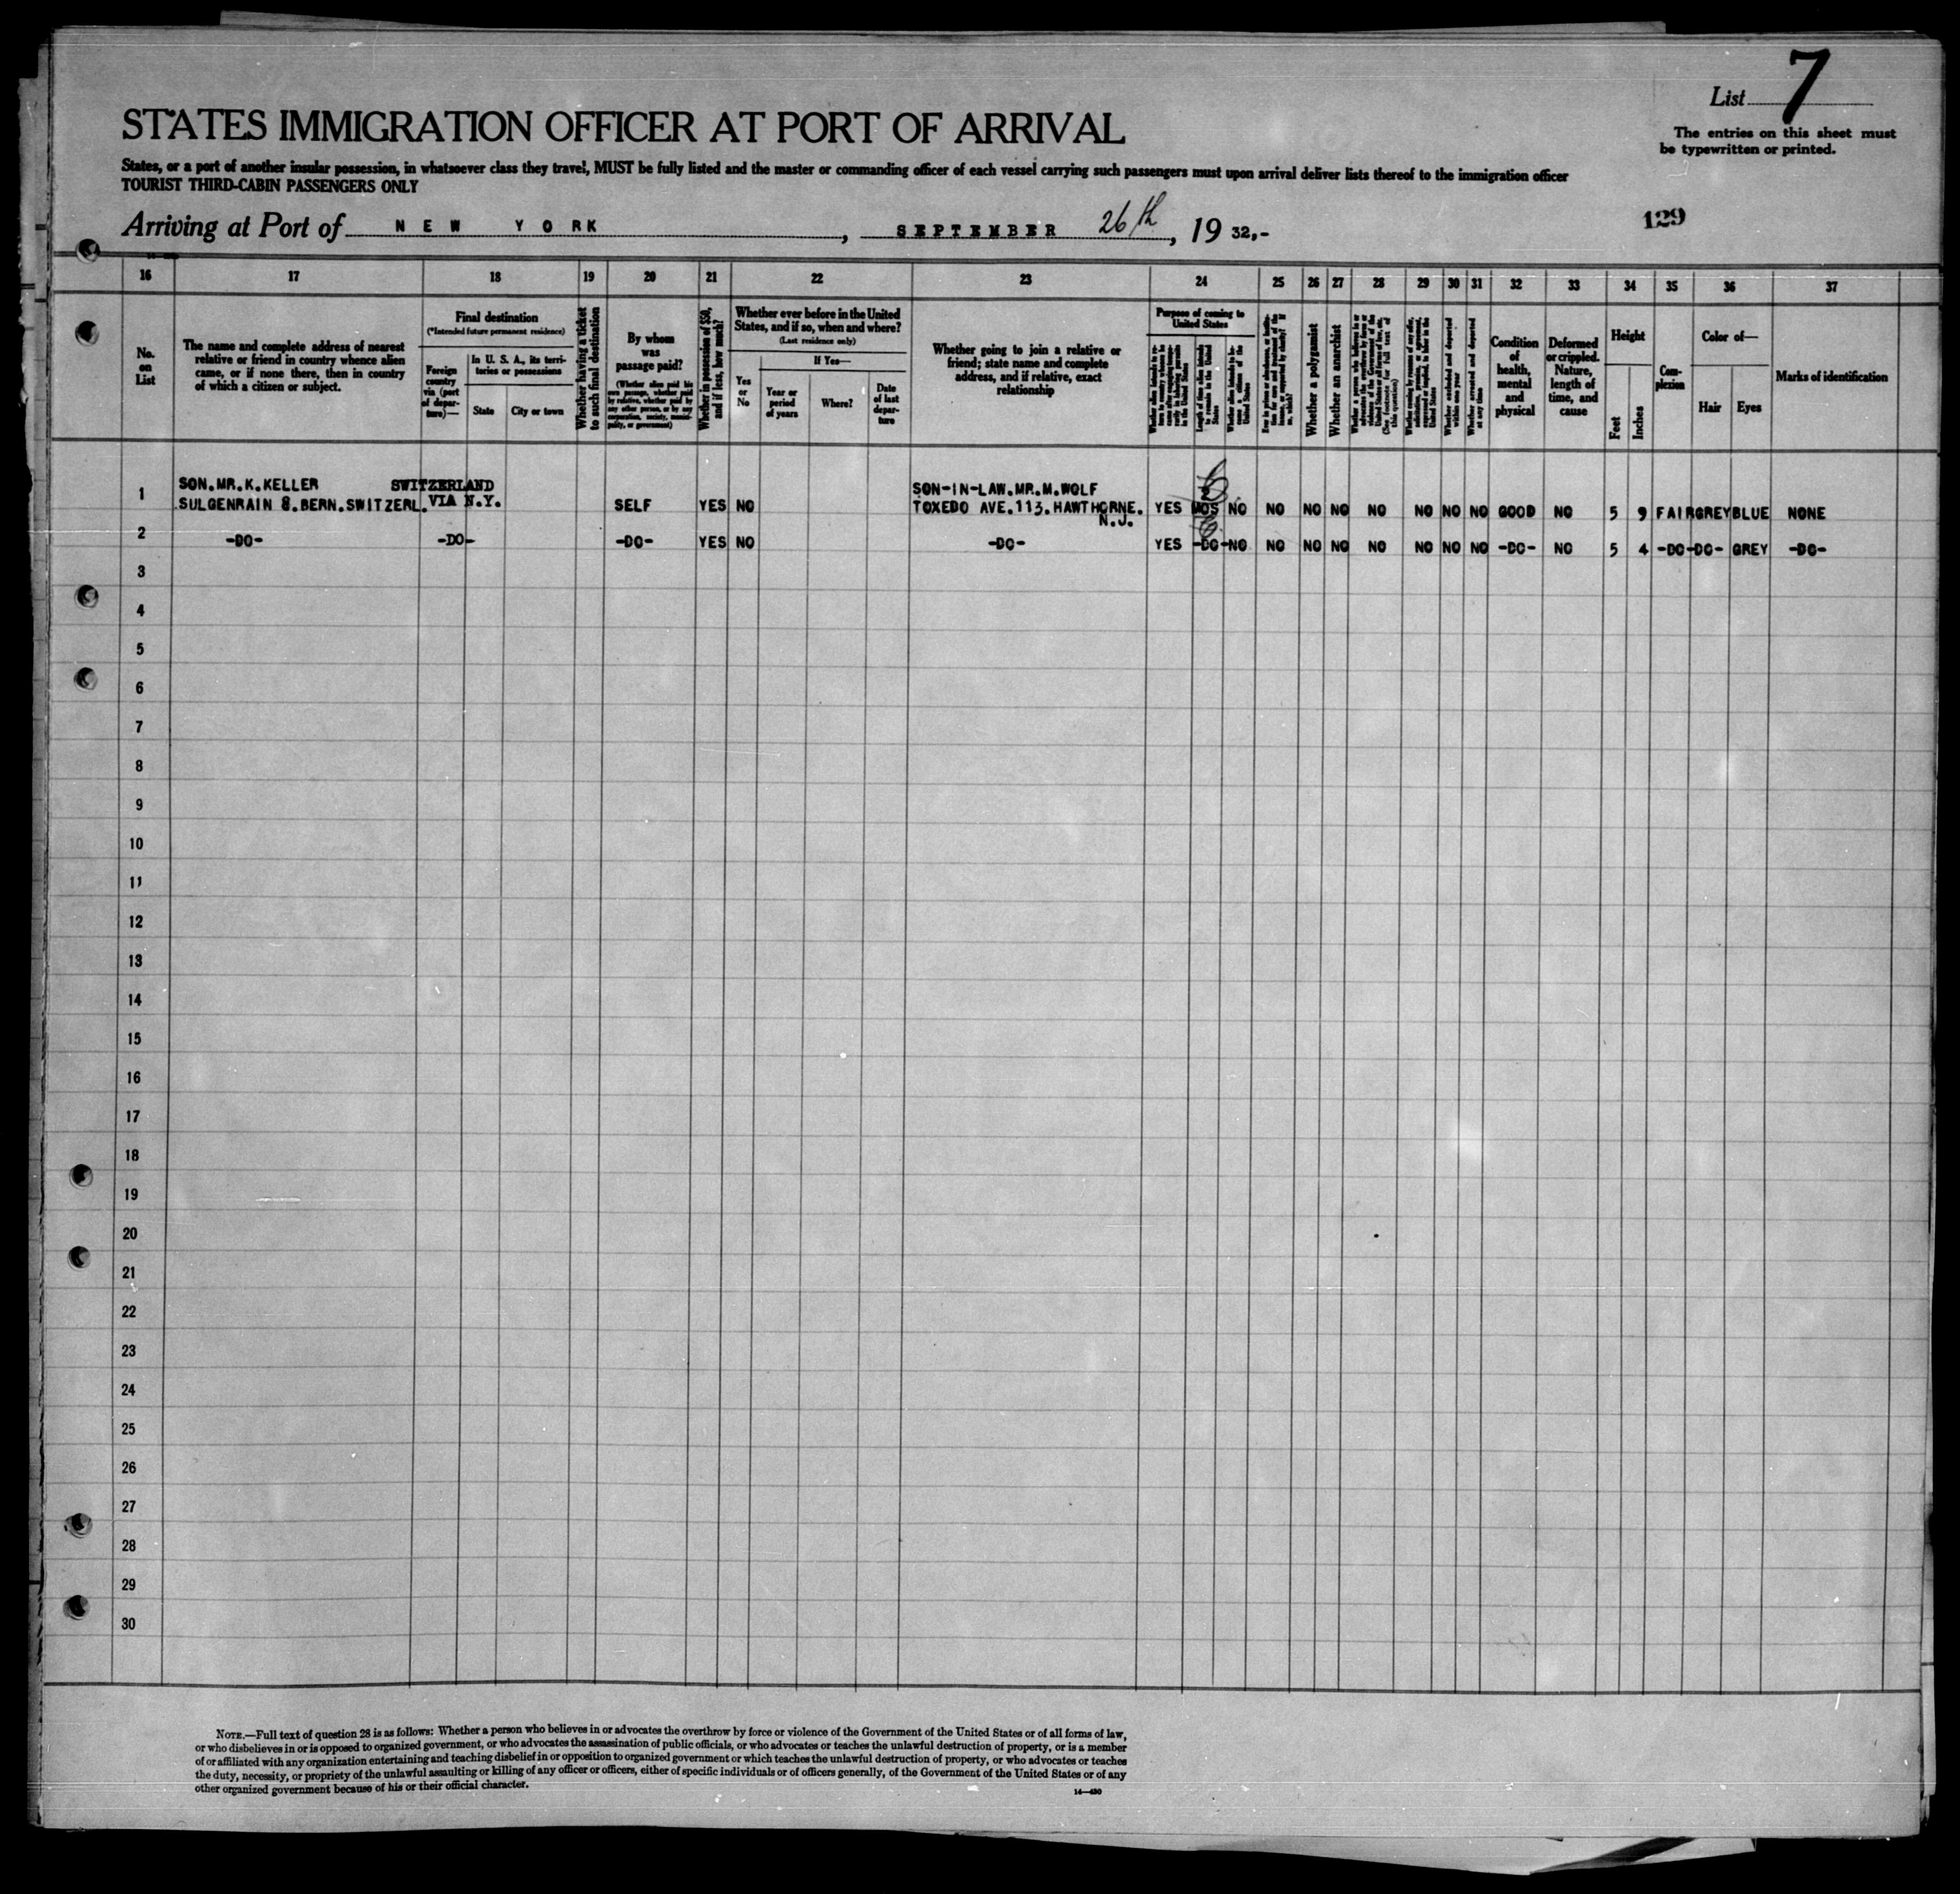 7
List
The entries on this sheet must
be typewritten or printed.
STATES IMMIGRATION OFFICER AT PORT OF ARRIVAL
States, or a port of another insular possession, in whatsoever class they travel, MUST be fully listed and the master or commanding officer of each vessel carrying such passengers must upon arrival deliver lists thereof to the immigration officer
TOURIST THIRD-CABIN PASSENGERS ONLY
129
Arriving at Port of NEW YORK, SEPTEMBER 26th, 19 32,-
16 17 18 19 20 21 22 23 24 25 26 27 28 29 30 31 32 33 34 35 36 37
No.
on
List
The name and complete address of nearest
relative or friend in country whence alien
came, or if none there, then in country
of which a citizen or subject.
Final destination
(*Intended future permanent residence)
Foreign
country
via (port
of depar-
ture)—
In U. S. A., its terri-
tories or possessions
State
City or town
Whether having a ticket
to such final destination
By whom
was
passage paid?
(Whether alien paid his
own passage, whether paid
by relative, whether paid by
any other person, or by any
corporation, society, munici-
pality, or government)
Whether in possession of $50,
and if less, how much?
Whether ever before in the United
States, and if so, when and where?
(Last residence only)
Yes
or
No
If Yes—
Year or
period
of years
Where?
Date
of last
depar-
ture
Whether going to join a relative or
friend; state name and complete
address, and if relative, exact
relationship
Purpose of coming to
United States
Length of time alien intends
to remain in the United
States
Whether a polygamist
Whether an anarchist
Whether arrested and deported
at any time
Condition
of
health,
mental
and
physical
Deformed
or crippled.
Nature,
length of
time, and
cause
Height
Feet
Inches
Com-
plexion
Color of—
Hair
Eyes
Marks of identification
SON.MR.K.KELLER SWITZERLAND SON-IN-LAW.MR.M.WOLF 2
1 SULGENRAIN 8.BERN.SWITZERL. VIA N.Y. SELF YES NO TOXEDO AVE.113.HAWTHORNE. YES MOS NO NO NO NO NO NO NO NO GOOD NO 5 9 FAIR GREY BLUE NONE
N.J.
2 -DO- -DO- -DO- YES NO -DO- YES -DO- NO NO NO NO NO NO NO NO -DO- NO 5 4 -DO- -DO- GREY -DO-
3
4
5
6
7
8
9
10
11
12
13
14
15
16
17
18
19
20
21
22
23
24
25
26
27
28
29
30
NOTE.—Full text of question 28 is as follows: Whether a person who believes in or advocates the overthrow by force or violence of the Government of the United States or of all forms of law,
or who disbelieves in or is opposed to organized government, or who advocates the assassination of public officials, or who advocates or teaches the unlawful destruction of property, or is a member
of or affiliated with any organization entertaining and teaching disbelief in or opposition to organized government or which teaches the unlawful destruction of property, or who advocates or teaches
the duty, necessity, or propriety of the unlawful assaulting or killing of any officer or officers, either of specific individuals or of officers generally, of the Government of the United States or of any
other organized government because of his or their official character.
14—430